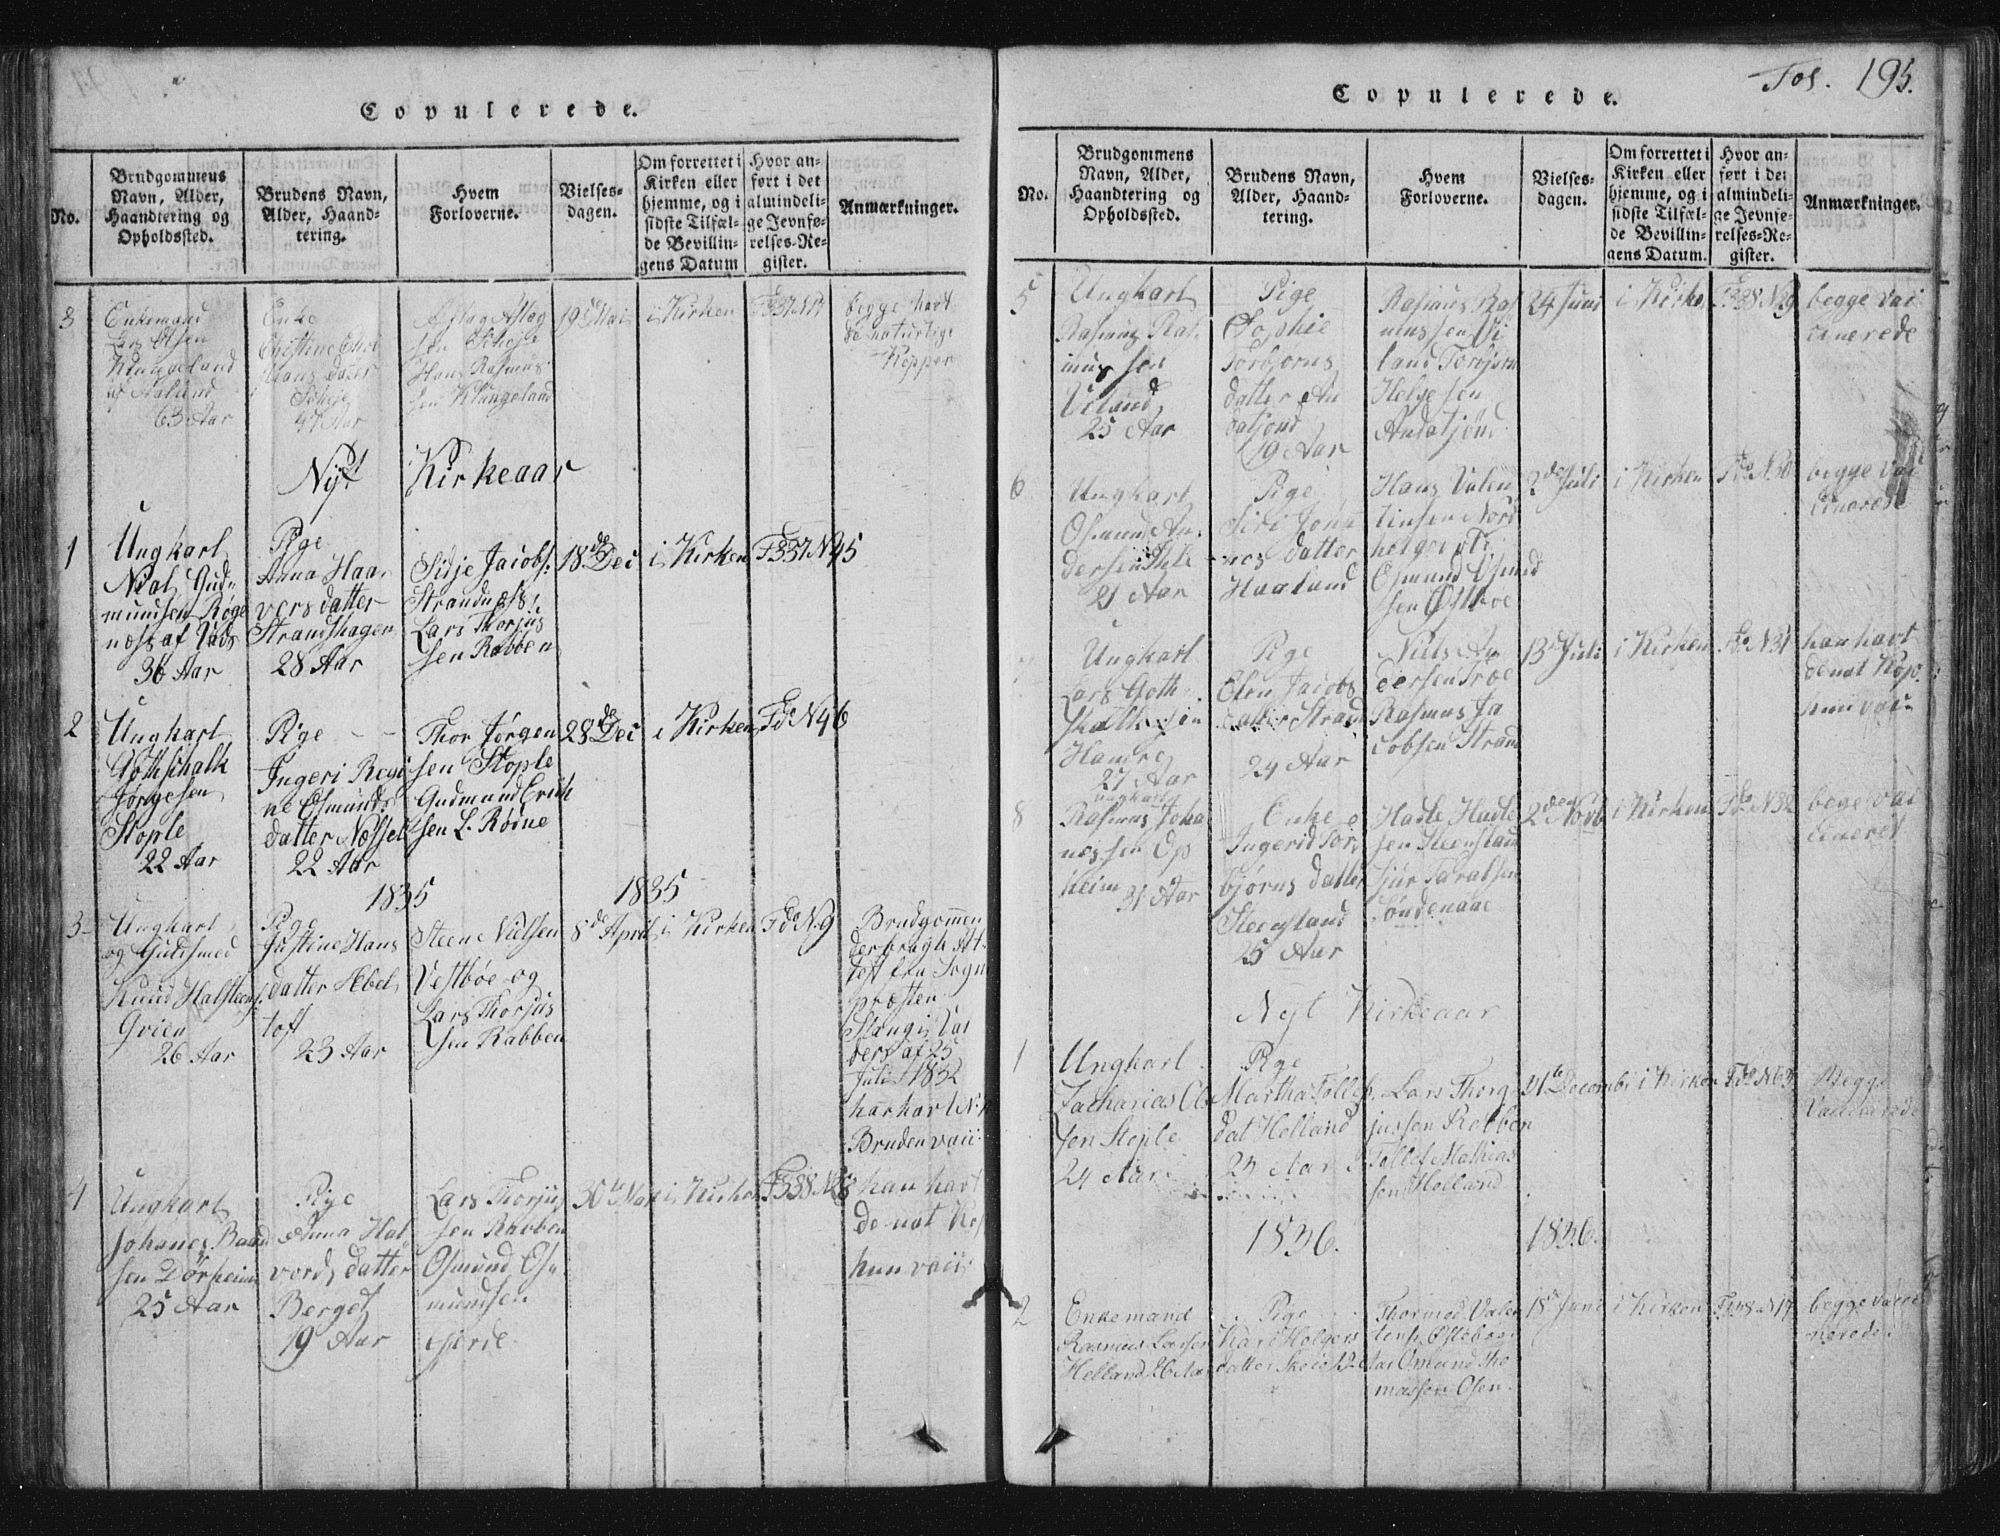 Copulerede.
No.
Brudgommens
Navn, Alder,
Haandtering og
Opholdssted.
Brudens Navn,
Alder, Haand-
tering.
Hvem
Forloverne.
Vielses-
dagen.
Om forrettet i
Kirken eller
hjemme, og i
sidste Tilfæl-
de Bevillin-
gens Datum
Hvor an-
ført i det
almindeli-
ge Jevnfø-
relses-Re-
gister.
Anmærkninger.
3
Enkemand
63 Aar
Enke
Aslag Aslag
Hans Rasmus
sen Klungeland
19de Mai
i Kirken
begge havt
de naturlige
Kopper
Nyt Kirkeaar
1
Ungkarl
Nial Gud-
mundsen Røge
næss af
36 Aar
Pige
Anna Haa
vers datter
Strandshagen
28 Aar
Sidje Jacobs.
Strandnæss
Lars Thorjus
sen Rabben
18de Dec
i Kirken
F337 N45
2
Ungkarl
Gothschalk
Jørgesen
Stople
22 Aar
Pige
Ingeri Regi
ne Osmunds
datter
22 Aar
Thor Jørgen
sen Stople
Gudmund Erich
sen L. Rødne
28de Dec
i Kirken
Fdo N46
1835
1835
3
Ungkarl
og Guldsmed
Knud Halsteens.
Gvien
26 Aar
Pige
Justine Hans
datter Æbel
toft
23 Aar
Steene Nielsen
Vestbøe og
Lars Thorjus
sen Rabben
8de April
i Kirken
Fdo N.9
Brudgommen
derbragh At-
test fra Sogne
præsten
Stang i
ders af 25
Juli 1832
har havt
Bruden vaci
4
Ungkarl
Johanes Baard
sen Dørheim
25 Aar
Pige
Anna Hal
vords datter
Berget
19 Aar
Lars Thorjus
sen Rabben
Osmund Os
mundsen
30te Mai
i Kirken
F338 N28
han havt
de nat Kop
hun vaci
Copulerede.
Fol. 195.
No.
Brudgommens
Navn, Alder,
Haandtering og
Opholdssted.
Brudens Navn,
Alder, Haand-
tering.
Hvem
Forloverne.
Vielses-
dagen.
Om forrettet i
Kirken eller
hjemme, og i
sidste Tilfæl-
de Bevillin-
gens Datum.
Hvor an-
ført i det
almindeli-
ge Jevnfø-
relses-Re-
gister.
Anmærkninger.
5
Ungkarl
Rasmus Ras
mussen
25 Aar
Pige
Sophie
Torbjørns
datter An
datjønd
19 Aar
Rasmus Ras
mussen Vi
land Torbjørn
Helgesen
Andatjønd
24 Juni
i Kirke
F338 N29
begge vac
cinerede
6
Ungkarl
Osmund An
dersen
21 Aar
Pige
Siri Joha
nes datter
Haaland
Hans Valen
tinsen Nord
Osmund Osmund
sen Østbøe
2de Juli
i Kirken
Fdo N30
begge vac
cinerede
Ungkarl
Lars Goth
skalksen
Hamre
27 Aar
Pige
Elen Jacobs
datter Strand
24 Aar
Niels An
dersen Troe
Rasmus Ja
cobsen Strand
13de Juli
i Kirken
Fdo N31
han havt
de nat Kop.
hun vac
8
Ungkarl
Rasmus Joha
nessen Op
heim
31 Aar
Enke
Ingerid Tor
bjørns datter
Steensland
25 Aar
Hadle Hadle
sen Steensland
Sjur Taralsen
Søndenaae
2den Novb
i Kirken
Fdo N32
bege vac
cineret
Nyt Kirkeaar
1
Ungkarl
Zacharias Ol
sen Stople
24 Aar
Pige
Martha Tollefs.
dat Helland
23 Aar
Lars Thorg
jussen Robben
Tollef Mathias
sen Helland
Decemb
i Kirken
Begge
Vaccinerede
1836.
1836.
2
Enkemand
Rasmus Larsen
Helland
Pige
Kari Holgers
datter Skeie
Thormod Valen
tins.
Omund Tho
massen Osen
18de Juni
i Kirken
begge vacci
nerede